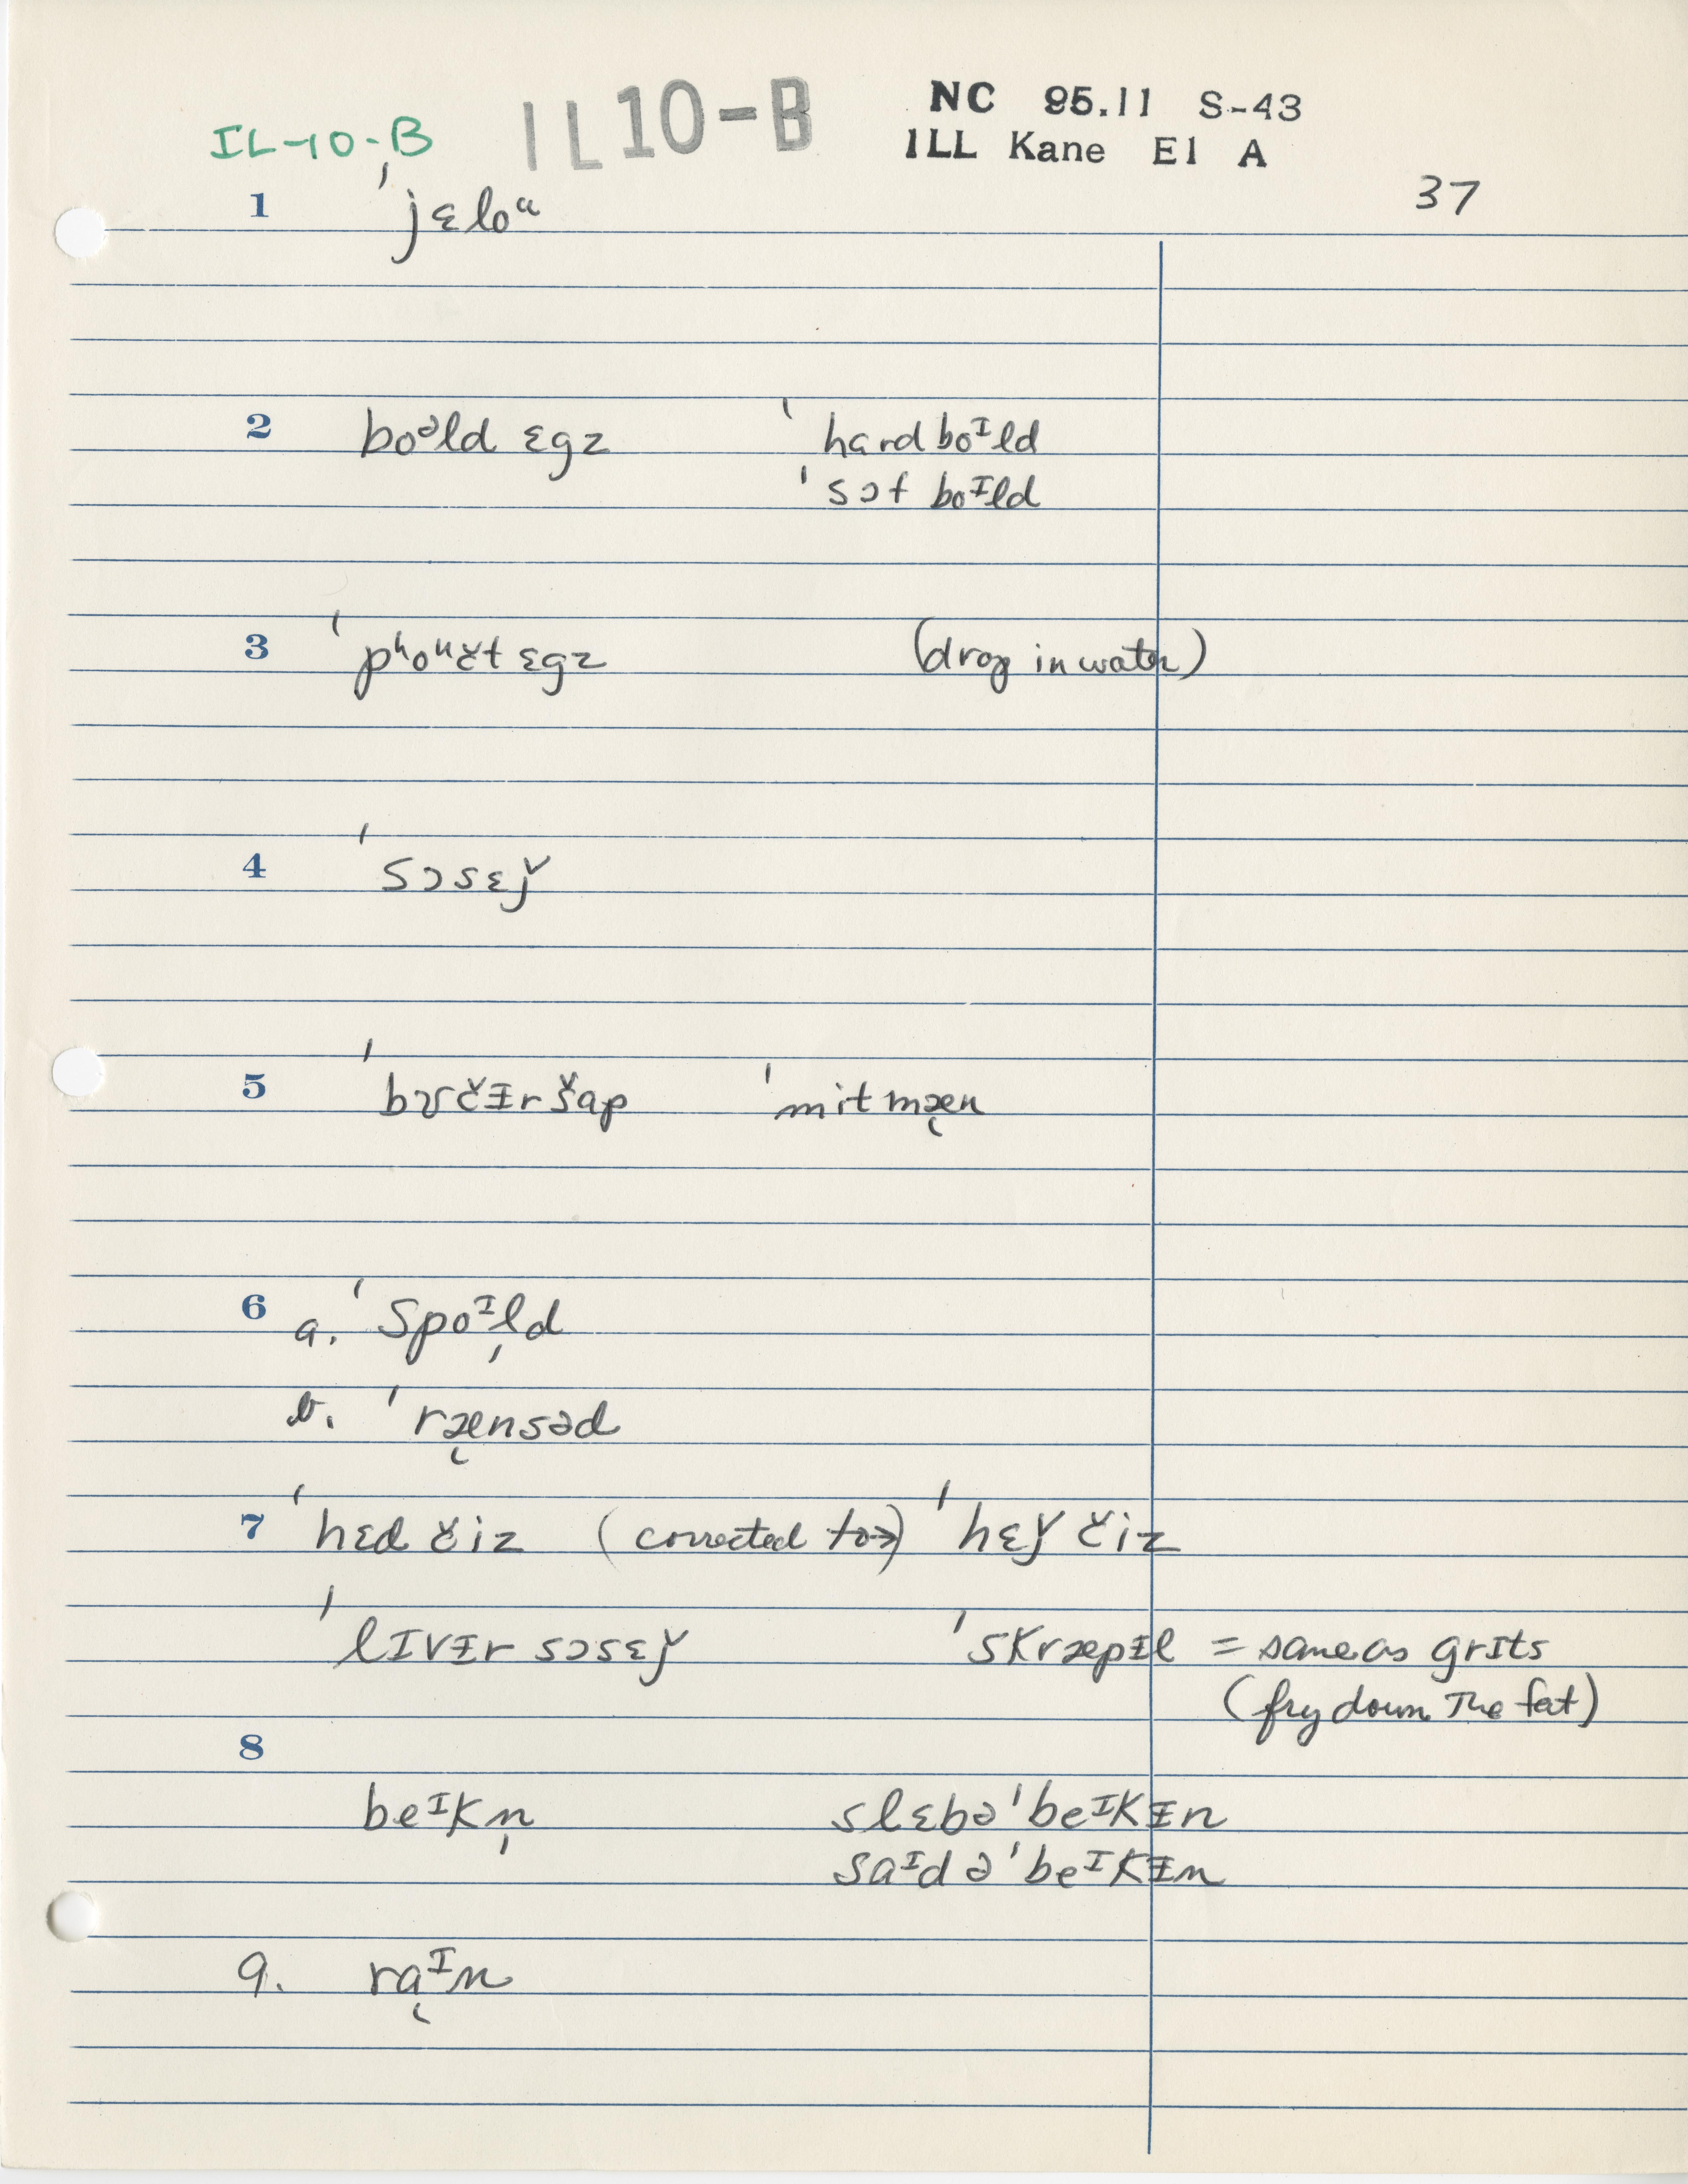 IL-10-B IL10-B NC 95.11 S-43
ILL Kane El A
37
1 ˈjɛloᵘ
2 boᵊld ɛgz ˈhardboᴵld
ˈsɔf boᴵld
3 ˈpʰoᵘč̌t ɛgz (drop in water)
4 ˈsɔsɛǰ
5 ˈbʊčᵻr šap ˈmitmæ̨n
6 a. ˈspoᴵl̩d
b. ˈræ̨nsəd
7 ˈhɛd čiz (corrected to→) ˈhɛǰ čiz
ˈlɪvᵻr sɔsɛǰ ˈskræpᵻl = same as grɪts
(fry down the fat)
8
beᴵkn̩ slɛbəˈbeᴵkᵻn
saᴵd əˈbeᴵkᵻn
9. rą​ᴵn